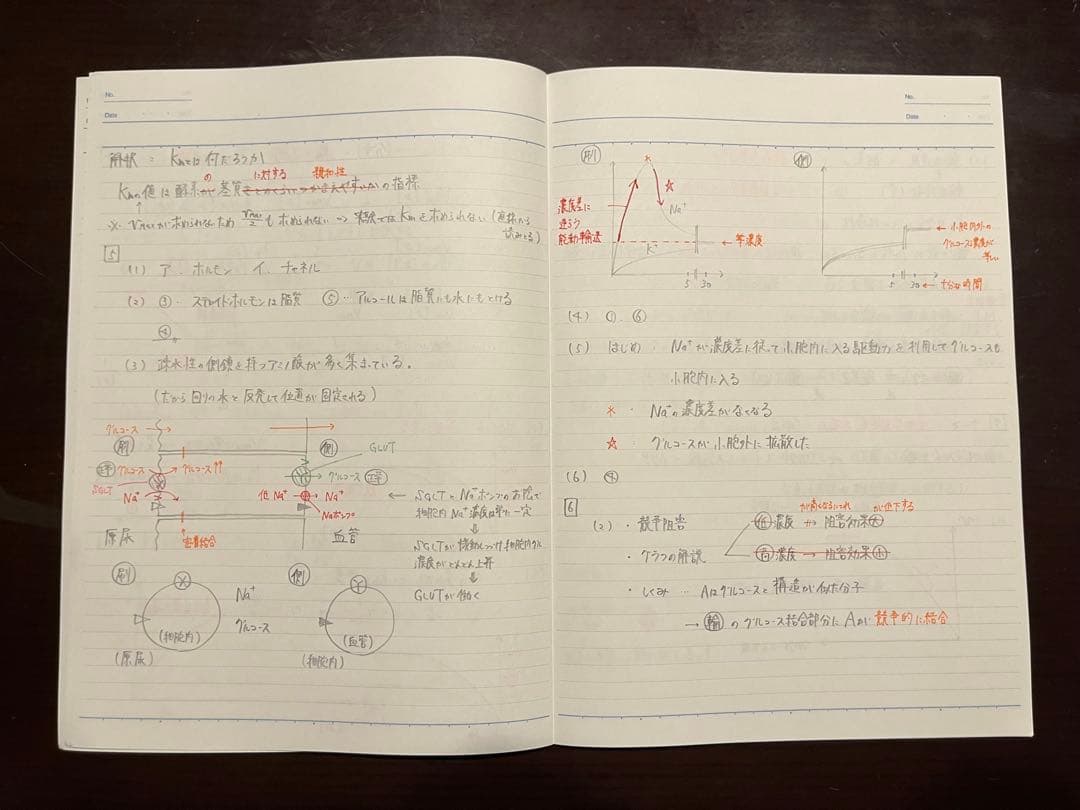 No.
Date
解釈 : Kmとは何だろうか
の に対する 親和性
Kmの値は酵素が基質をとのくらいつかまえやすいかの指標
※ Vmaxが求められないため Vmax/2 も求められない → 実験ではKmを求められない (直接だと読みとる)
5
(1) ア. ホルモン イ. チャネル
(2) ③‥ ステロイドホルモンは脂質 ⑤‥アルコールは脂質にも水にもとける
④
(3) 疎水性の側鎖を持つアミノ酸が多く集まっている。
(だから回りの水と反発して位置が固定される)
グルコース
刷 側 GLUT
グルコース グルコース↑↑ グルコース
SGLT
Na⁺ 低Na⁺ Na⁺
Naポンプ
原尿 密着結合 血管
← SGLTとNa⁺ポンプのお陰で
細胞内Na⁺濃度は常に一定
⇓
SGLTが稼動しつづけ細胞内グル
濃度がどんどん上昇
⇓
GLUTが働く
刷 X Na⁺ 側 Y
グルコース
(細胞内) (血管)
(原尿) (細胞内)
No.
Date
刷 側
濃度差に
逆らう
能動輸送
* ☆
Na⁺
K⁺
← 等濃度
5 30
← 小胞内外の
グルコース濃度が
等しい
5 30 ← 十分な時間
(4) ①. ⑥
(5) はじめ‥ Na⁺が濃度差に従って小胞内に入る駆動力を利用してグルコースも
小胞内に入る
* ‥ Na⁺の濃度差がなくなる
☆ ‥ グルコースが小胞外に拡散した
(6) ④
6
が高くなるにつれ が低下する
(2) ・競争阻害 低濃度 → 阻害効果大
・グラフの解説 高濃度 → 阻害効果小
・しくみ … Aはグルコースと構造が似た分子
→ 輸のグルコース結合部分にAが競争的に結合